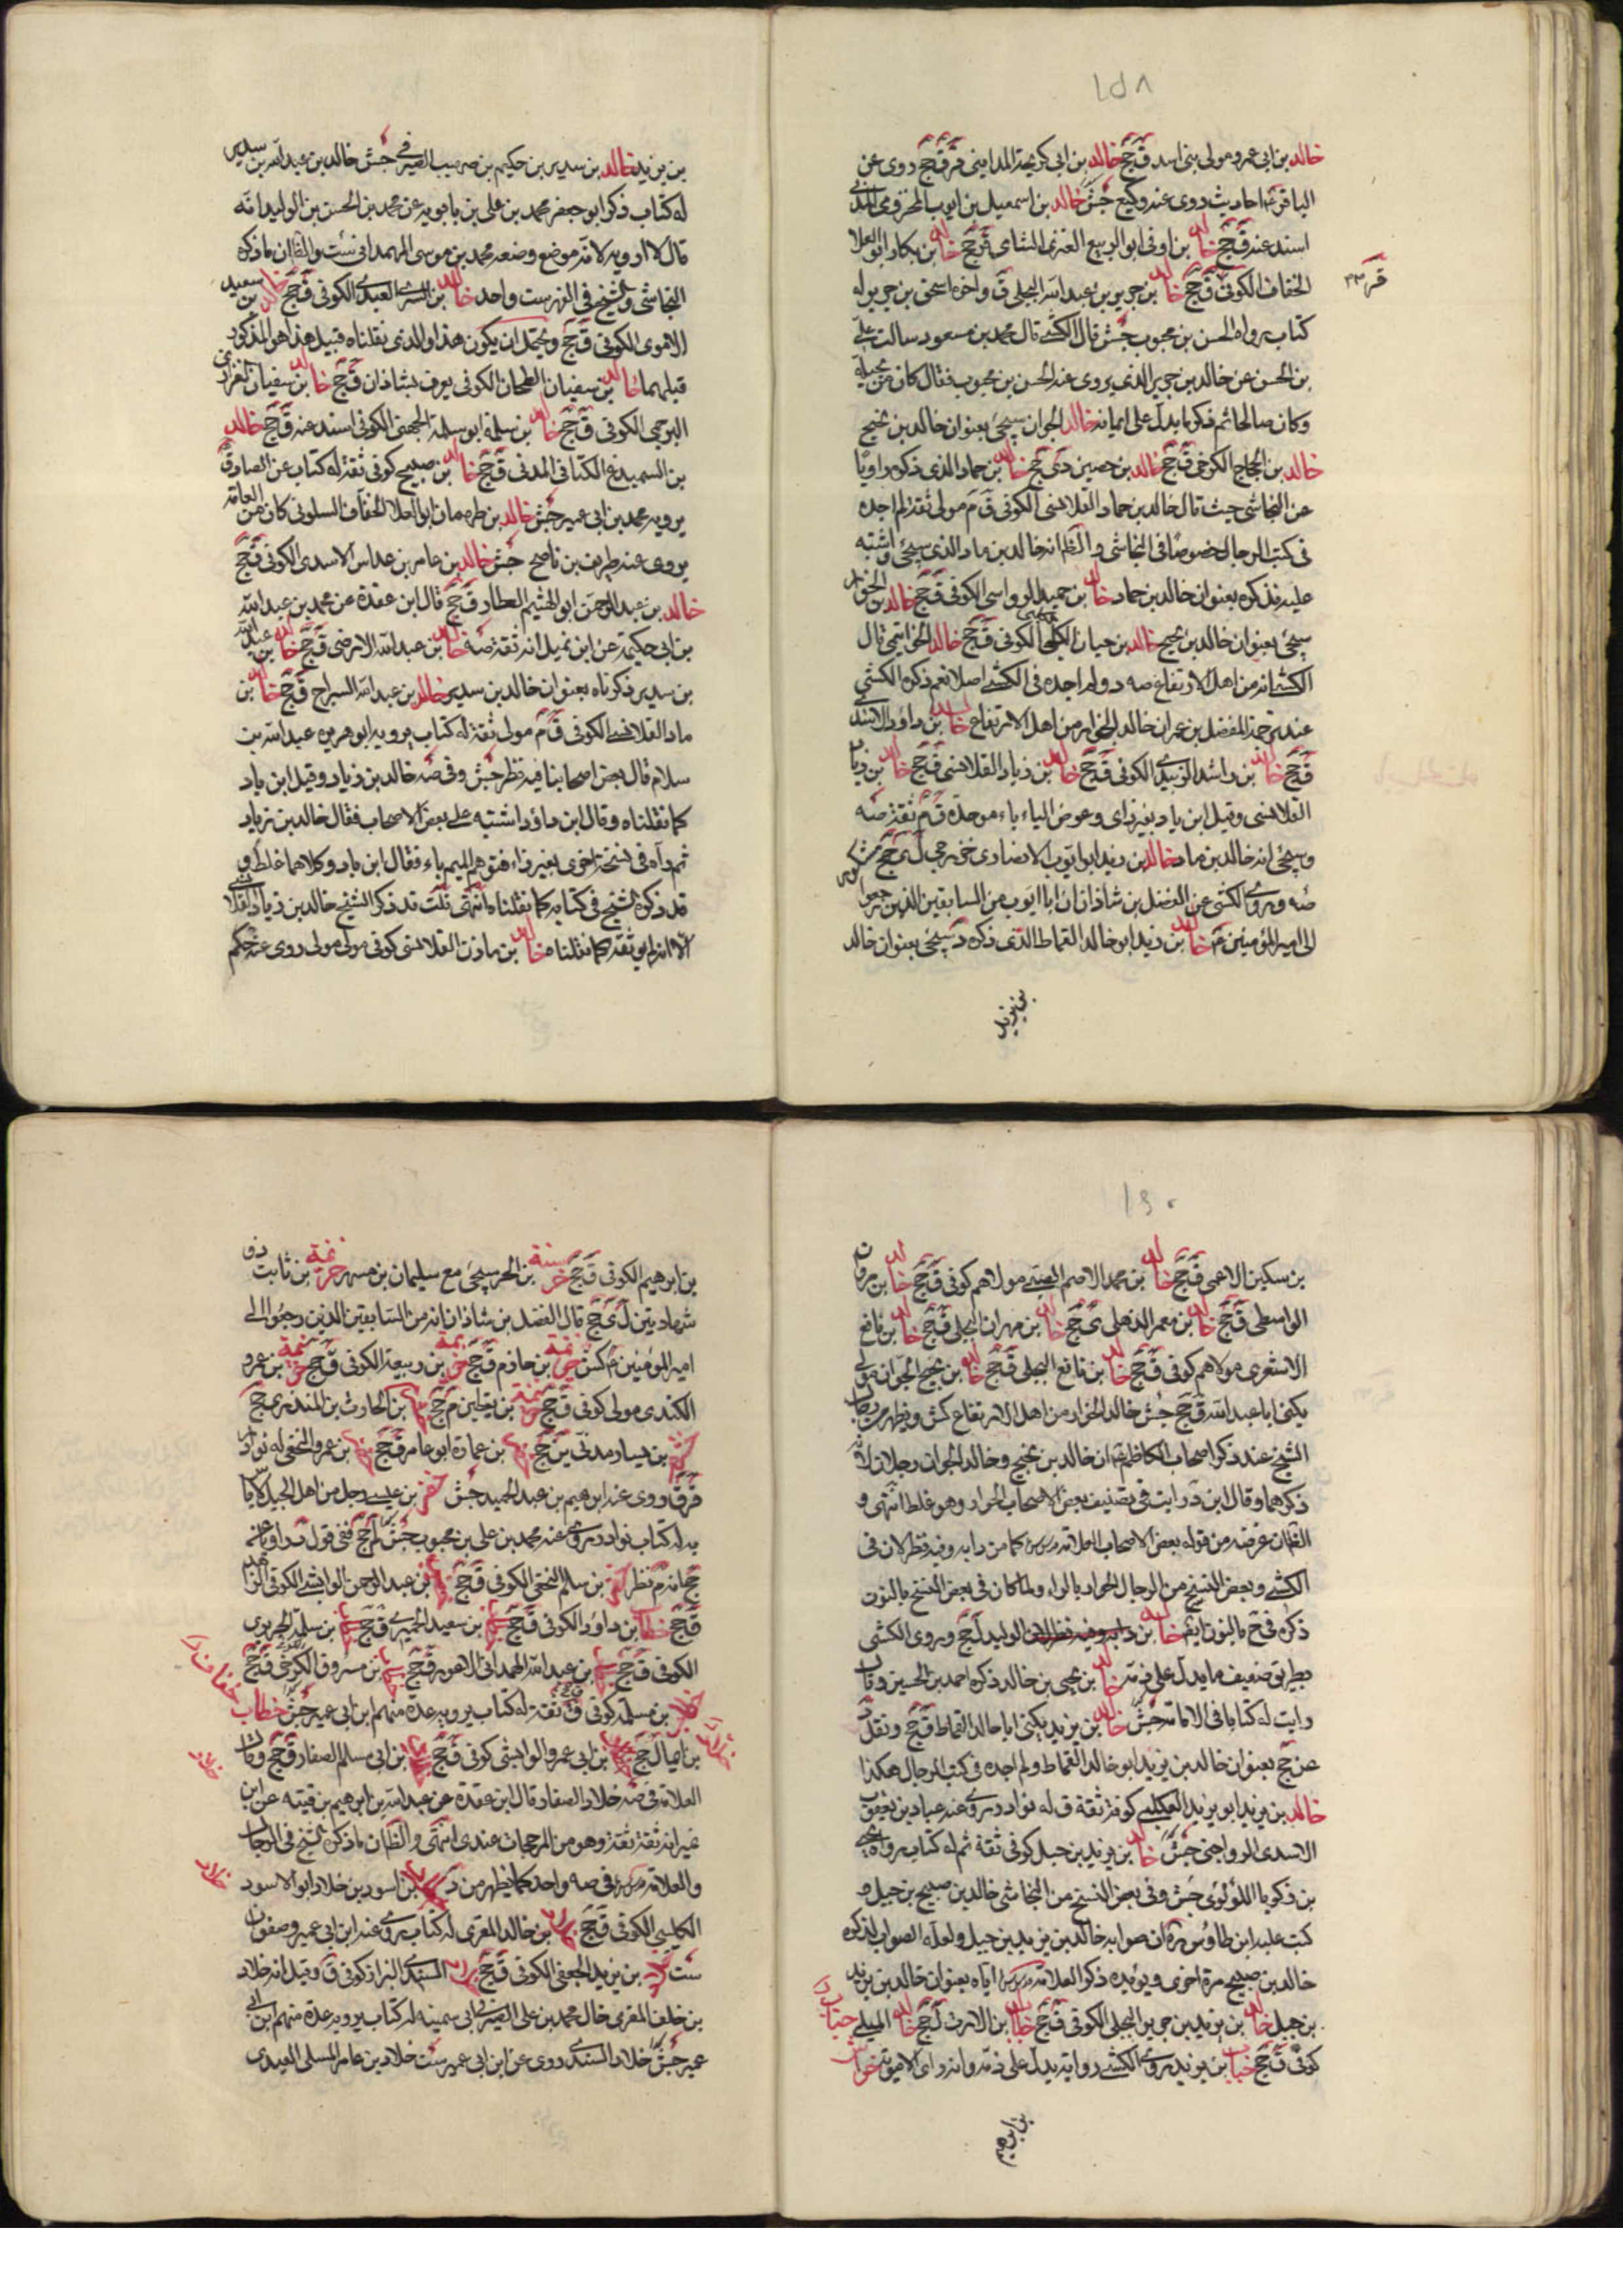 ١٥٨
خالد بن ابي عمرو مولى بني اسد ق جج خالد بن ابي كريمة المدايني قر ق جج روى عن
الباقر ع احاديث روى عنه وكيع جش خالد بن اسمعيل بن ايوب المخزومي المدني
اسند عنه ق جج خالد بن اوفى ابو الربيع العنزي الشامي قر جج خالد بن بكار ابو العلا
الخفاف الكوفي ق جج خالد بن جرير بن عبد الله البجلي ق واخوه اسحق بن جرير له
كتاب رواه الحسن بن محبوب جش قال الكشي قال محمد بن مسعود سالت علي
بن الحسن عن خالد بن جرير الذي يروي عنه الحسن بن محبوب فقال كان من بجيلة
وكان صالحا ثم ذكر ما يدل على ايمانه خالد الجوان سيجئ بعنوان خالد بن نجيح
خالد بن الحجاج الكرخي ق جج خالد بن حصين دى جج خالد بن حماد الذي ذكره د راويا
عن النجاشي حيث قال خالد بن حماد القلانسي الكوفي ق م مولى ثقة لم اجده
في كتب الرجال خصوصا في النجاشي والظ انه خالد بن ماد الذي سيجئ واشتبه
عليه فذكره بعنوان خالد بن حماد خالد بن حميد الرواسي الكوفي ق جج خالد بن
سيجئ بعنوان خالد بن نجيح خالد بن حيان الكلبي الكوفي ق جج خالد الخواتمي قال
الكشي انه من اهل الارتفاع صه د ولم اجده في الكشي اصلا نعم ذكره الكشي
عند ترجمة المفضل بن عمر ان خالد الجوان من اهل الارتفاع خالد بن داود الاسدي
ق جج خالد بن راشد الزبيدي الكوفي ق جج خالد بن زياد القلانسي ق جج خالد بن زياد
القلانسي وقيل ابن باد بغير زاي وعوض الياء باء موحدة ق م ثقة صه
وسيجئ انه خالد بن ماد خالد بن زيد ابو ايوب الانصاري خزرجي ل ي جج مشكور
صه وروى الكشي عن الفضل بن شاذان ان ابا ايوب من السابقين الذين رجعوا
الى امير المؤمنين ع خالد بن زيد ابو خالد القماط الذي ذكره د سيجئ بعنوان خالد
بن يزيد
قر
بن يزيد خالد بن سدير بن حكيم بن صهيب الصيرفي جش خالد بن عبد الله بن سدير
له كتاب ذكر ابو جعفر محمد بن علي بن بابويه عن محمد بن الحسن بن الوليد انه
قال لا ارويه لانه موضوع وضعه محمد بن موسى الهمداني ست والظ ان ما ذكره
النجاشي والشيخ في الفهرست واحد خالد بن السري العبدي الكوفي ق جج خالد بن سعيد
الاموي الكوفي ق جج ويحتمل ان يكون هذا والذي نقلناه قبيل هذا هو المذكور
قبلهما خالد بن سفيان الطحان الكوفي يعرف بشاذان ق جج خالد بن سفيان الفزاري
البرجمي الكوفي ق جج خالد بن سلمة ابو سلمة الجهني الكوفي اسند عنه ق جج خالد
بن السميدع الكناني المدني ق جج خالد بن صبيح كوفي ثقة له كتاب عن الصادق ع
يرويه محمد بن ابي عمير جش خالد بن طهمان ابو العلا الخفاف السلولي كان من العامة
يروي عنه ظريف بن ناصح جش خالد بن عامر بن عداس الاسدي الكوفي ق جج
خالد بن عبد الرحمن ابو الهيثم العطار ق جج قال ابن عقدة عن محمد بن عبد الله
بن ابي حكيمة عن ابن نمير انه ثقة ثقة صه خالد بن عبد الله الارمني ق جج خالد بن عبد الله
بن سدير ذكرناه بعنوان خالد بن سدير خالد بن عبد الله السراج ق جج خالد بن
ماد القلانسي الكوفي ق م مولى ثقة له كتاب يرويه ابو هريرة عبد الله بن
سلام قال بعض اصحابنا فيه نظر جش وفي صه خالد بن زياد وقيل ابن باد
كما نقلناه وقال ابن داود اشتبه على بعض الاصحاب فقال خالد بن زياد
ثم رآه في نسخة اخرى بغير زاء فتوهم الميم باء فقال ابن باد وكلاهما غلط و
قد ذكره الشيخ في كتابه كما نقلناه انتهى قلت قد ذكر الشيخ خالد بن زياد القلانسي
الا انه لم يوثقه كما نقلناه خالد بن مازن القلانسي كوفي مولى روى عنه حكم
١٦٠
بن سكين الاعمى ق جج خالد بن محمد الاصم الضبي مولاهم كوفي ق جج خالد بن مروان
الواسطي ق جج خالد بن معمر الذهلي ى جج خالد بن مهران البجلي ق جج خالد بن نافع
الاشعري مولاهم كوفي ق جج خالد بن نافع البجلي ق جج خالد بن نجيح الجوان مولى
يكنى ابا عبد الله ق جج جش خالد الجوان من اهل الارتفاع كش ويظهر من كتاب
الشيخ عند ذكر اصحاب الكاظم ع ان خالد بن نجيح وخالد الجوان رجلان لانه
ذكرهما وقال ابن د رايت في تصنيف بعض الاصحاب الحوار وهو غلط انتهى و
الظ ان غرضه من قوله بعض الاصحاب العلامة قدس سره كما من دابه وفيه نظر لان في
الكشي وبعض النسخ من الرجال الحوار بالراء ولما كان في بعض النسخ بالنون
ذكره في ح بالنون ايضا خالد بن الوليد ل جج ويروى الكشي
بطريق ضعيف ما يدل على ذمه خالد بن يحيى بن خالد ذكره احمد بن الحسين وقال
رايت له كتابا في الامامة جش خالد بن يزيد يكنى ابا خالد القماط ق جج ونقل د
عن جج بعنوان خالد بن زيد ابو خالد القماط ولم اجده في كتب الرجال هكذا
خالد بن يزيد ابو يزيد العكلي كوفي ثقة ق له نوادر روى عنه عباد بن يعقوب
الاسدي الرواجني جش خالد بن يزيد بن جبل كوفي ثقة م له كتاب رواه يحيى
بن زكريا اللؤلؤي جش وفي بعض النسخ من النجاشي خالد بن صبيح بن جبل و
كتب عليه ابن طاوس ره ان صوابه خالد بن يزيد بن جبل ولعله الصواب لذكره
خالد بن صبيح مرة اخرى ويؤيده ذكر العلامة قدس سره اياه بعنوان خالد بن يزيد
بن جبل خالد بن يزيد بن جرير البجلي الكوفي ق جج خباب بن الارت ل جج
كوفي ق جج خباب بن يزيد روى الكشي رواية يدل على ذمه وانه راى الاموية
بن ابراهيم
بن ابراهيم الكوفي ق جج خرشة بن الحر سيجئ مع سليمان بن مسهر خزيمة بن ثابت ذو
شهادتين ل ي جج قال الفضل بن شاذان انه من السابقين الذين رجعوا الى
امير المؤمنين ع كش خزيمة بن حازم ق جج خزيمة بن ربيعة الكوفي ق جج خزيمة بن عمرو
الكندي مولى كوفي ق جج خزيمة بن يقطين م جج بن الحارث بن المنذر ى جج
بن يسار مدني ين جج بن عمارة ابو عامر ق جج بن عمرو النخعي له نوادر
ق ق روى عنه ابراهيم بن عبد الحميد جش خضر بن عيسى رجل من اهل الجبل لا باس
به له كتاب نوادر روى عنه محمد بن علي بن محبوب جش لم جج ففي قول د راويا عنه
جج انه م نظر بن سالم النخعي الكوفي ق جج بن عبد الرحمن الوابشي الكوفي
ق جج خطاب بن داود الكوفي ق جج بن سعيد الحميري ق جج بن سلمة الجريري
الكوفي ق جج بن عبد الله الهمداني الاعور ق جج بن مسروق الكرخي ق جج
بن مسلمة كوفي ق ثقة له كتاب يرويه عدة منهم ابن ابي عمير جش خطاب
ل جج بن ابي عمرو الوابشي كوفي ق جج بن ابي مسلم الصفار ق جج وقال
العلامة في صه خلاد الصفار قال ابن عقدة عن عبد الله بن ابراهيم بن قتيبة عن ابن
نمير انه ثقة ثقة وهو من المرجحات عندي انتهى والظ ان ما ذكره الشيخ في الرجال
والعلامة قدس سره في صه واحد كما يظهر من د بن اسود بن خلاد ابو الاسود
الكوفي ق جج بن خالد المقري له كتاب روى عنه ابن ابي عمير وصفوان
ست بن يزيد الجعفي الكوفي ق جج السندي البزاز كوفي ق وقيل انه خلاد
بن خلف المقري خال محمد بن علي الصيرفي ابي سمينة له كتاب يرويه عدة منهم ابن ابي
عمير جش خلاد السندي روى عن ابن ابي عمير ست خلاد بن عامر المسلي العبدي